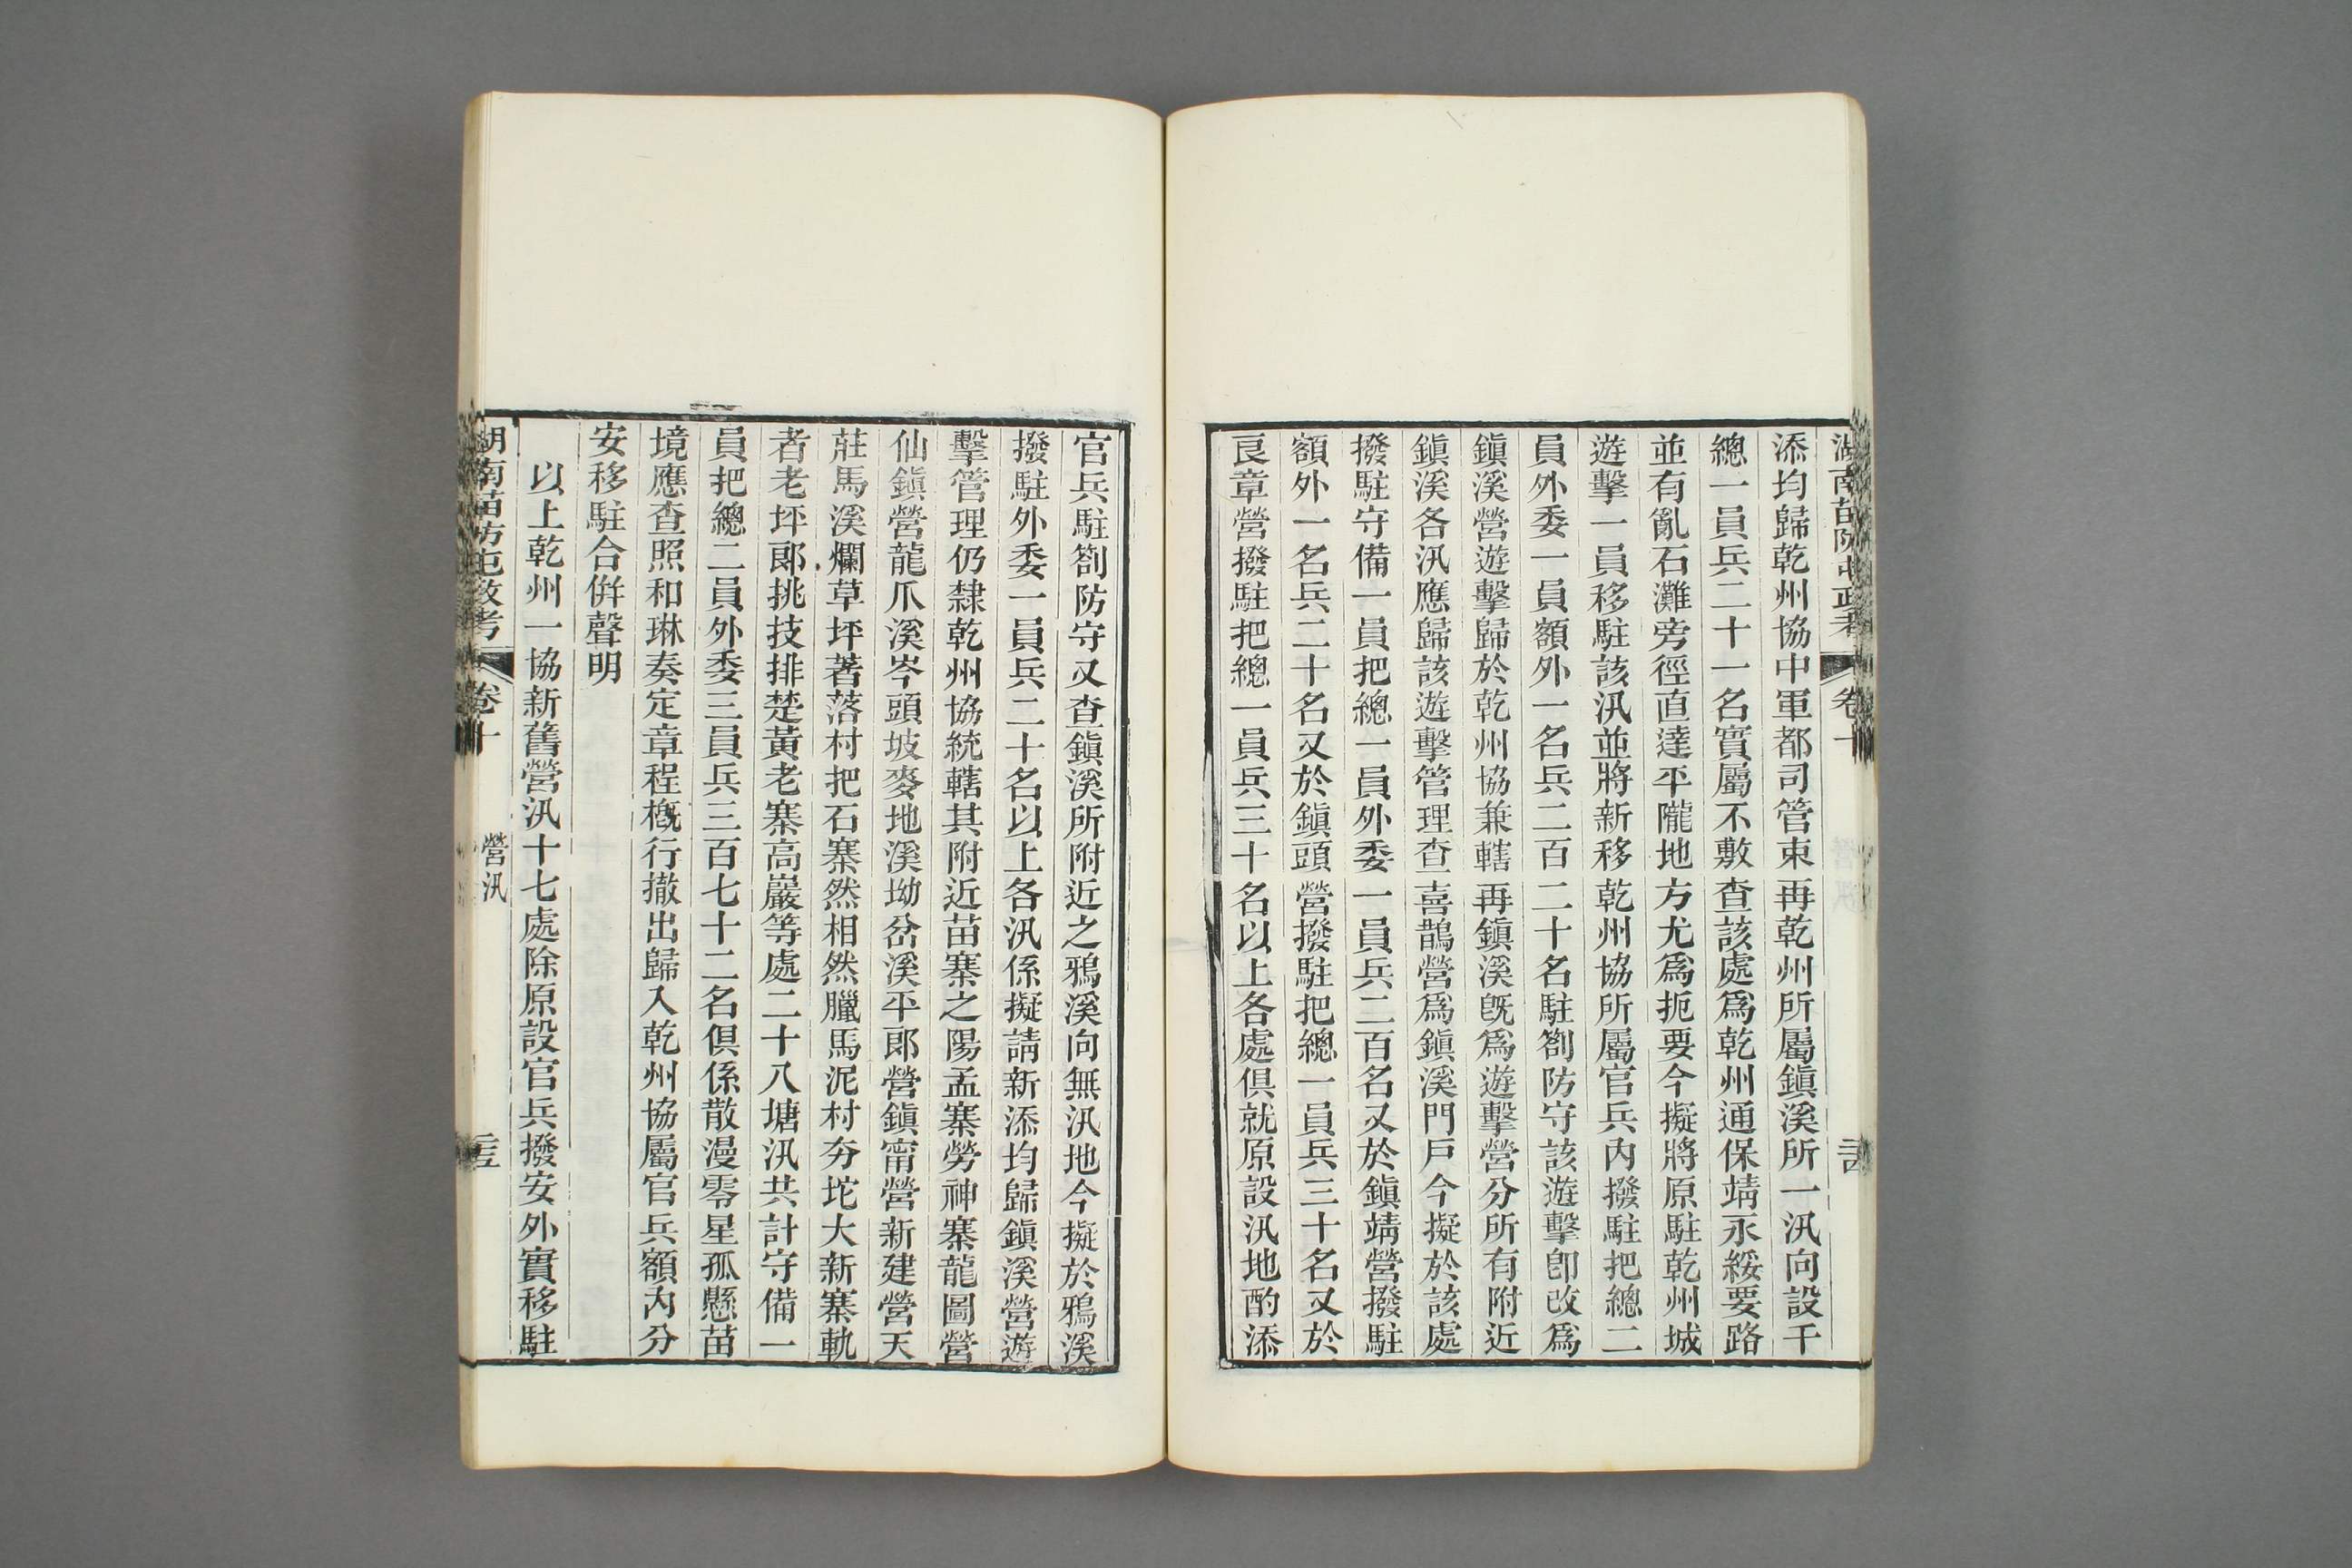 添均歸乾州協中軍都司管束再乾州所屬鎭溪所一汛向設千
總一員兵二十一名實屬不敷查該處爲乾州通保靖永綏要路
並有亂石灘旁徑直達平隴地方尤爲扼要今擬將原駐乾州城
遊擊一員移駐該汛並將新移乾州協所屬官兵內撥駐把總二
員外委一員額外一名兵二百二十名駐劄防守該遊擊卽改爲
鎭溪營遊擊歸於乾州協兼轄再鎭溪旣爲遊擊營分所有附近
鎭溪各汛應歸該遊擊管理查喜鵲營爲鎭溪門戶今擬於該處
撥駐守備一員把總一員外委一員兵二百名又於鎭靖營撥駐
額外一名兵二十名又於鎭頭營撥駐把總一員兵三十名又於
良章營撥駐把總一員兵三十名以上各處俱就原設汛地酌添
官兵駐劄防守又查鎭溪所附近之鴉溪向無汛地今擬於鴉溪
撥駐外委一員兵二十名以上各汛係擬請新添均歸鎭溪營遊
擊管理仍隸乾州協統轄其附近苗寨之陽孟寨勞神寨龍圖營
仙鎭營龍爪溪岑頭坡麥地溪坳岔溪平郞營鎭甯營新建營天
莊馬溪爛草坪著落村把石寨然相然臘馬泥村夯坨大新寨軌
者老坪郞挑技排楚黃老寨高巖等處二十八塘汛共計守備一
員把總二員外委三員兵三百七十二名俱係散漫零星孤懸苗
境應查照和琳奏定章程槪行撤出歸入乾州協屬官兵額內分
安移駐合倂聲明
以上乾州一協新舊營汛十七處除原設官兵撥安外實移駐
湖南苗防屯政考 卷十 營汛 二五